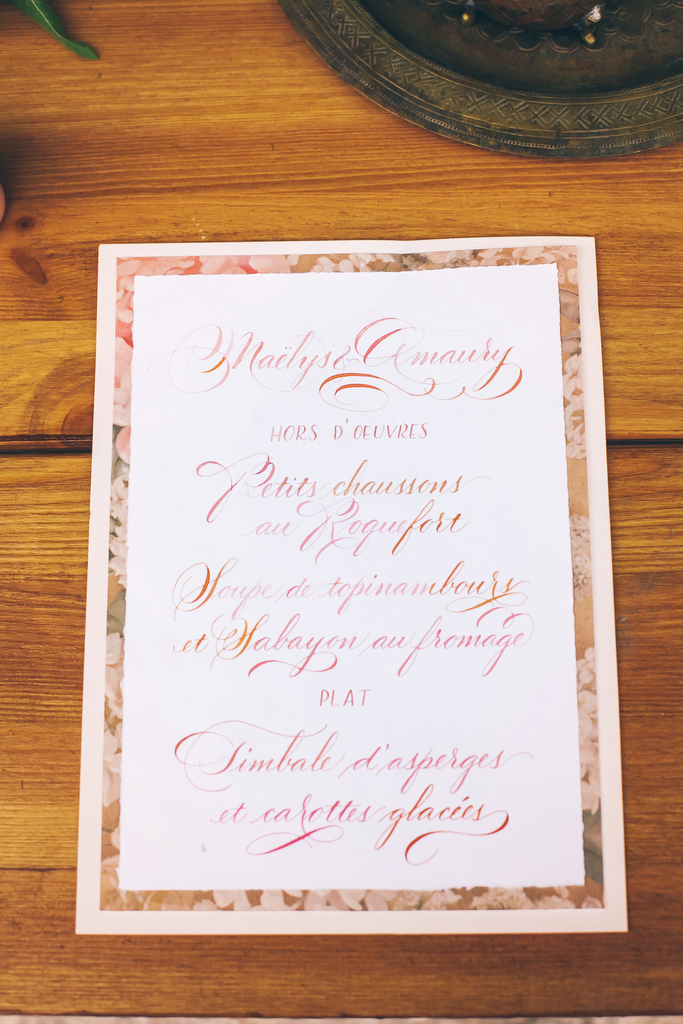 Maëlys & Amaury
HORS D'OEUVRES
Petits chaussons
au Roquefort
Soupe de topinambours
et Sabayon au fromage
PLAT
Timbale d'asperges
et carottes glacées